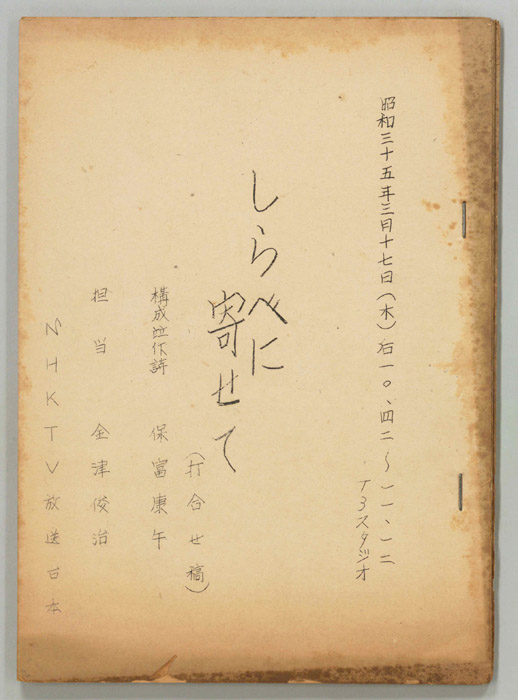 昭和三十五年三月十七日(木)后一〇、四二〜一一、一二
T3スタジオ
しらべに
寄せて
(打合せ稿)
構成並作詩 保富康午
担当 金津俊治
NHKTV放送台本